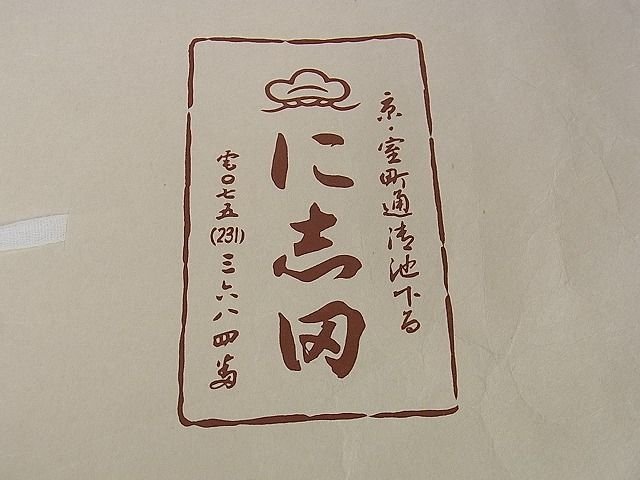 京・室町通御池下る
に志田
電〇七五(231)三六八四番